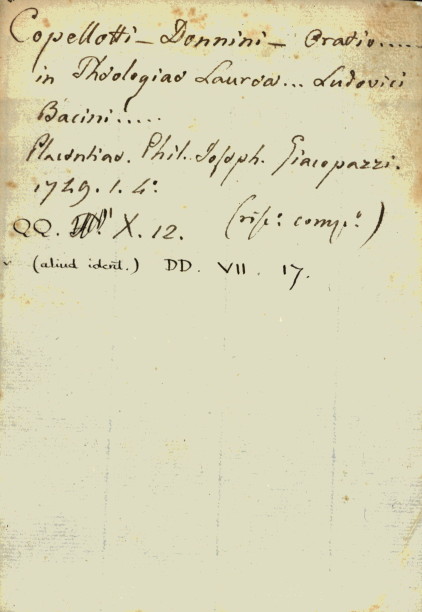 Copellotti — Donnini — Oratio.....
in Theologiae Laurea... Ludovici
Bacini.....
Placentiae. Phil. Joseph. Giacopazzi.
1749. 1. 4°.
QQ. X. 12. (risp. comp.)
(aliud ident.) DD. VII. 17.